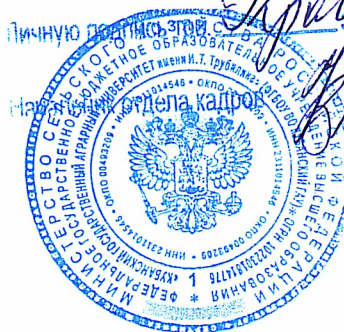 Личную подпись
Начальник отдела кадров
МИНИСТЕРСТВО СЕЛЬСКОГО ХОЗЯЙСТВА РОССИЙСКОЙ ФЕДЕРАЦИИ
ФЕДЕРАЛЬНОЕ ГОСУДАРСТВЕННОЕ БЮДЖЕТНОЕ ОБРАЗОВАТЕЛЬНОЕ УЧРЕЖДЕНИЕ ВЫСШЕГО ОБРАЗОВАНИЯ
«КУБАНСКИЙ ГОСУДАРСТВЕННЫЙ АГРАРНЫЙ УНИВЕРСИТЕТ имени И.Т. Трубилина»
ОГРН 1022301814776
ИНН 2311014546 • ОКПО 00493209
* 1 *